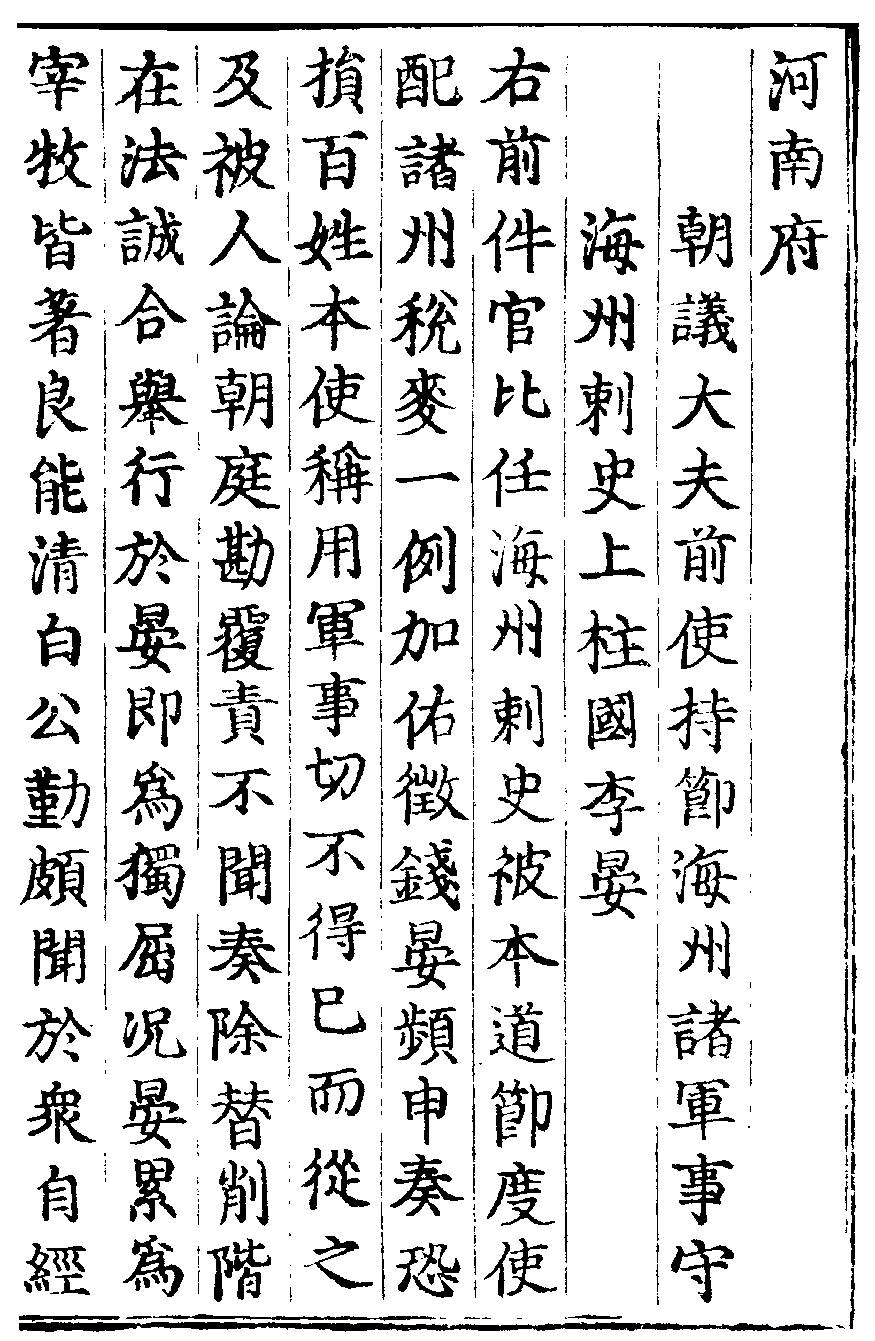 河南府
朝議大夫前使持節海州諸軍事守
海州刺史上柱國李晏
右前件官比任海州刺史被本道節度使
配諸州稅麥一例加估徵錢晏頻申奏恐
損百姓本使稱用軍事切不得已而從之
及被人論朝庭勘覆責不聞奏除替削階
在法誠合舉行於晏即為獨屈況晏累為
宰牧皆著良能清白公勤頗聞於衆自經